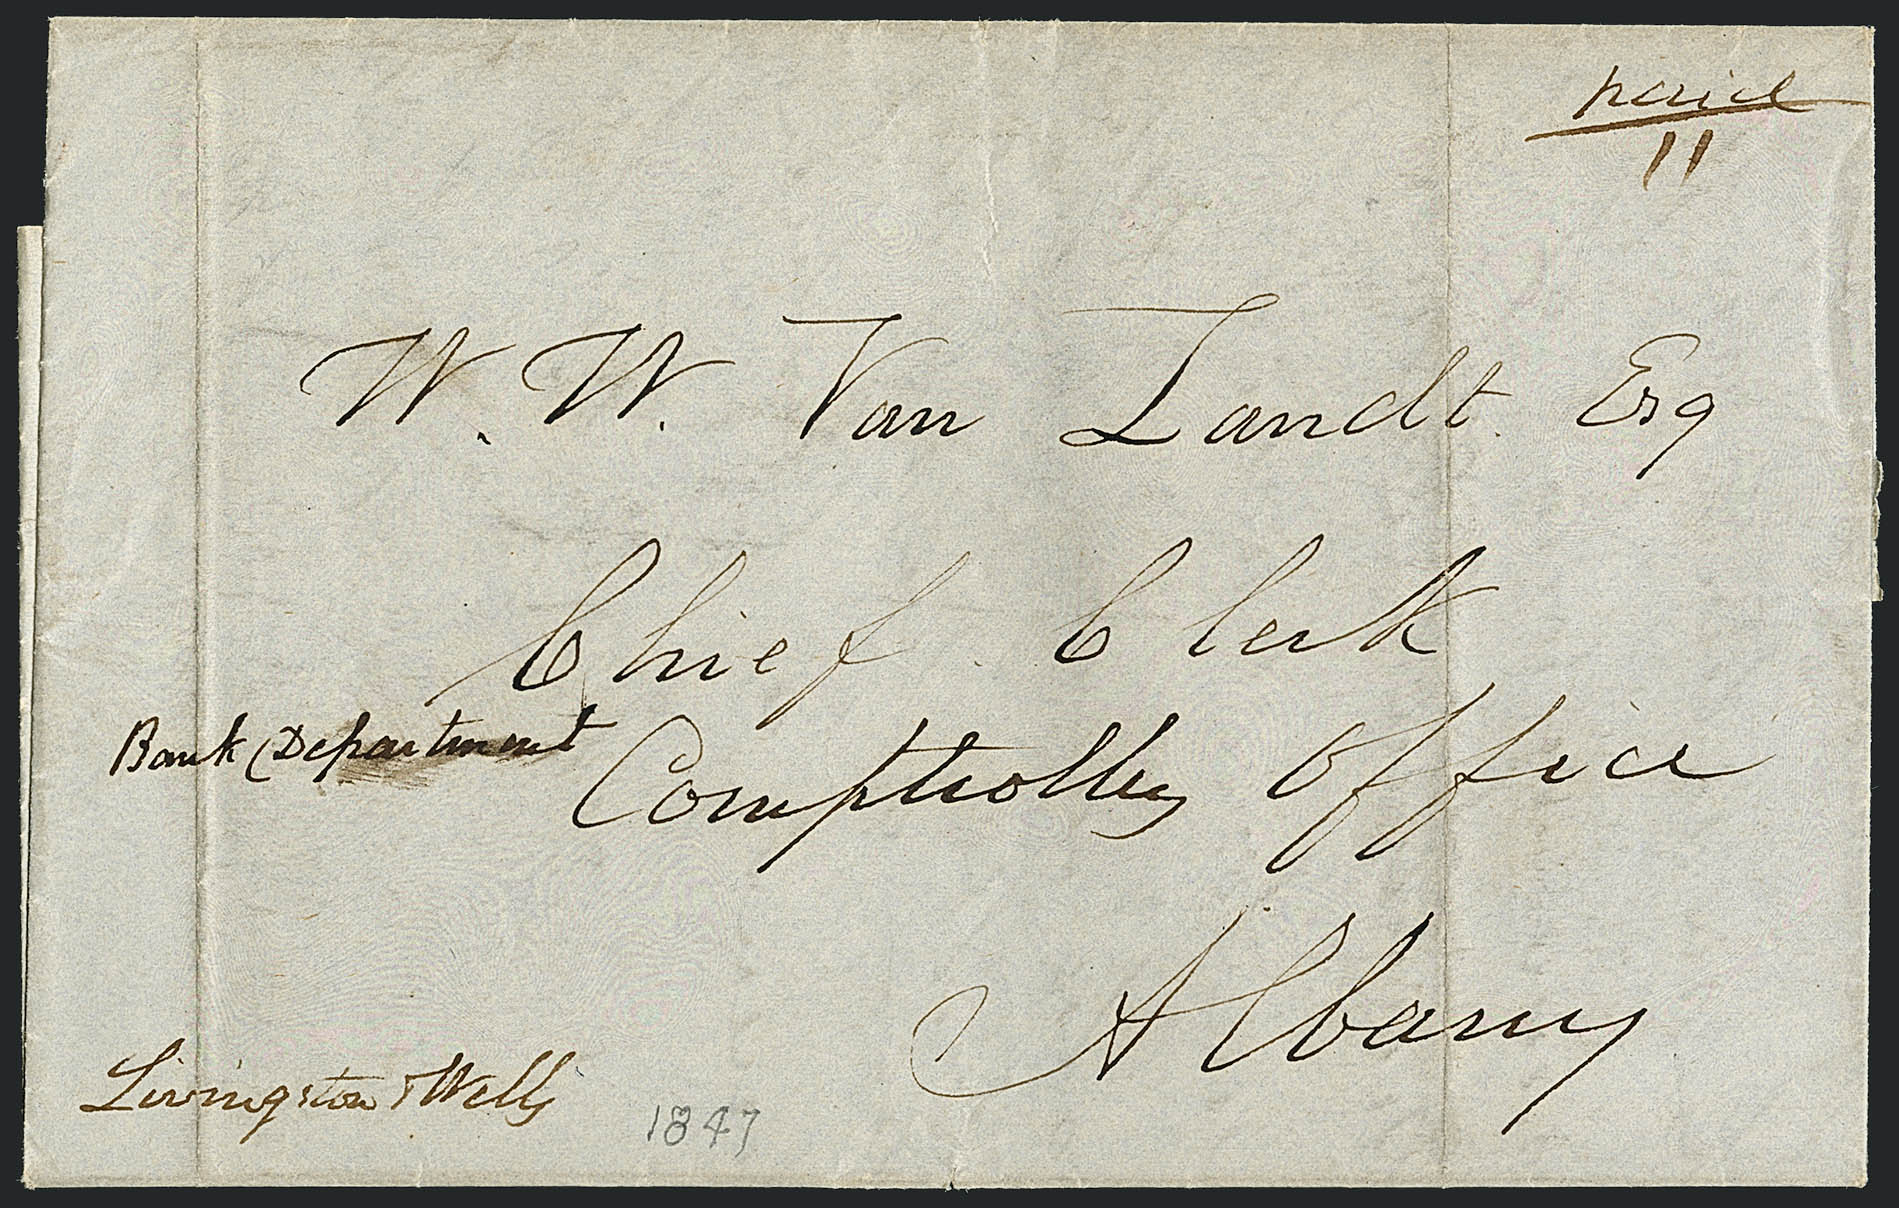 paid
11
W. W. Van Zandt Esq
Chief Clerk
Bank Department
Comptrollers Office
Albany
Livingston & Wells
1847